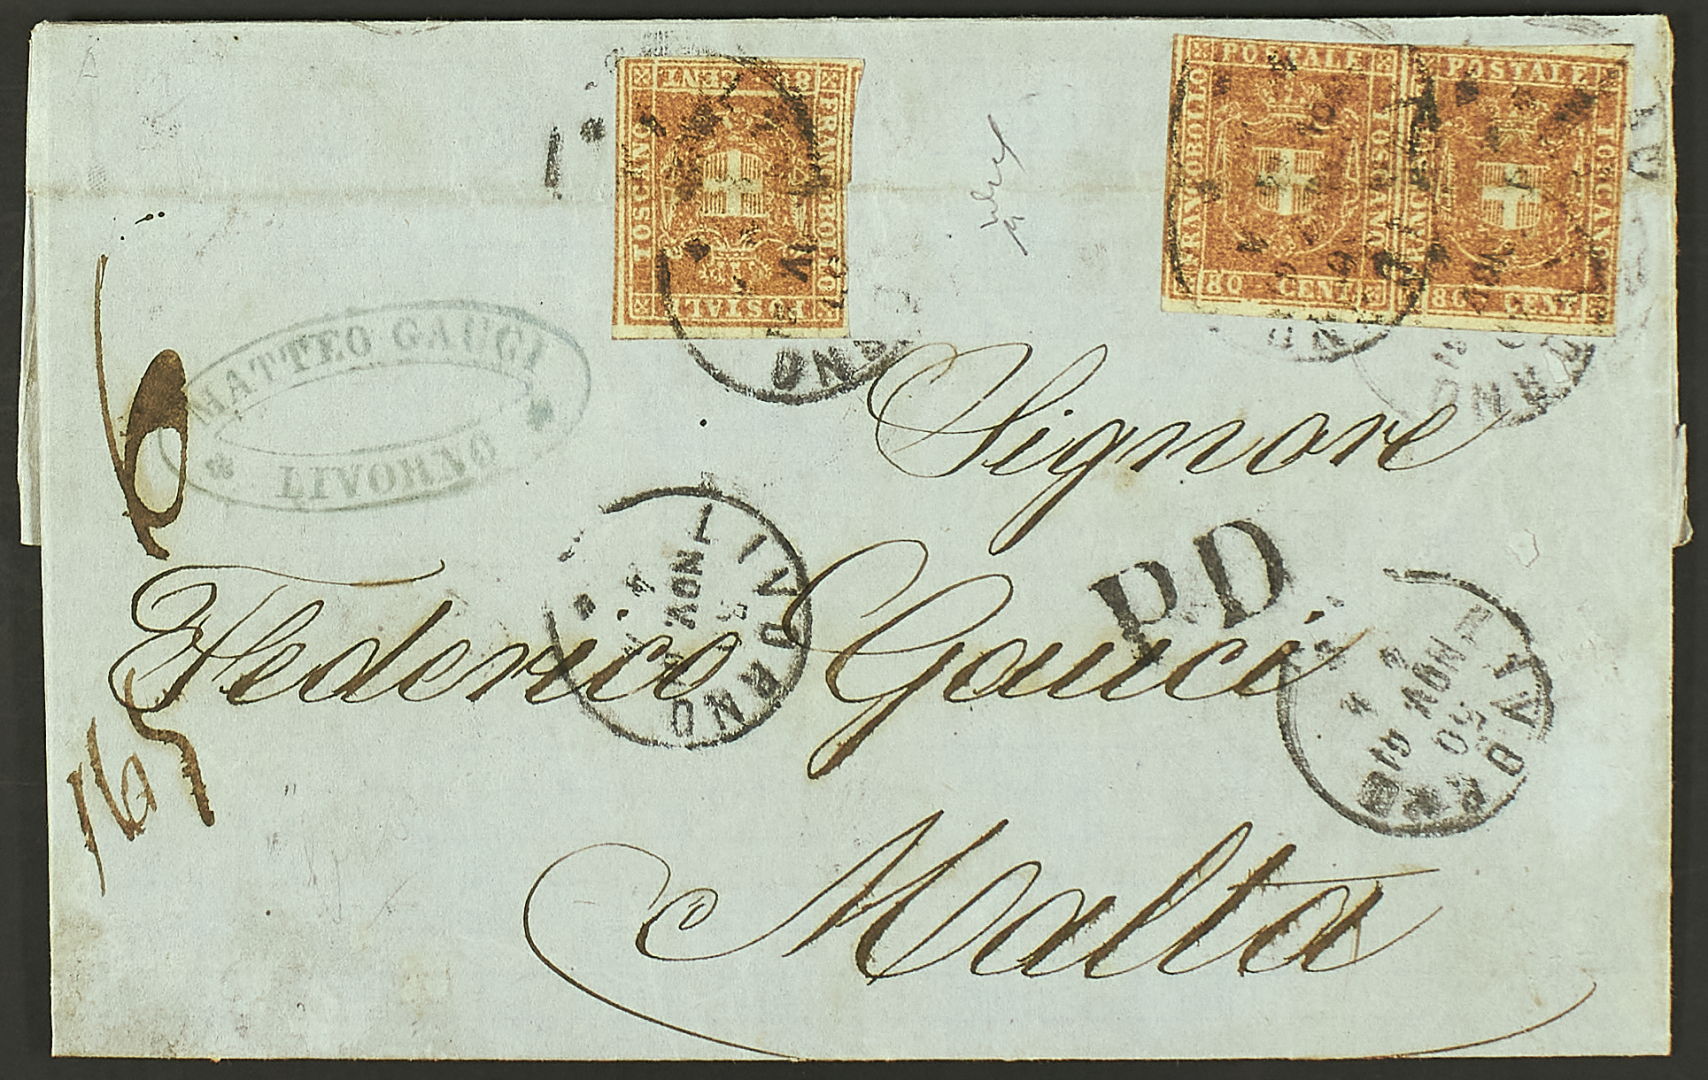 81 CENT
TOSCANO
FRANCOBOLLO
POSTALE
POSTALE
FRANCOBOLLO
TOSCANO
80 CENT
POSTALE
TOSCANO
80 CENT
MATTEO GAUCI
LIVORNO
6
Signore
LIVORNO
NOV
P.D
Federico Gauci
LIVORNO
NOV
60
165
Malta